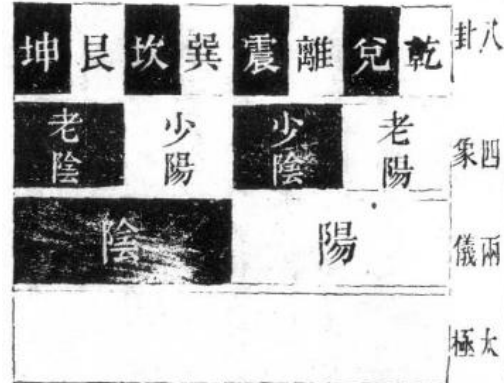 八卦
乾 兌 離 震 巽 坎 艮 坤
四象
老陽 少陰 少陽 老陰
兩儀
陽 陰
太極